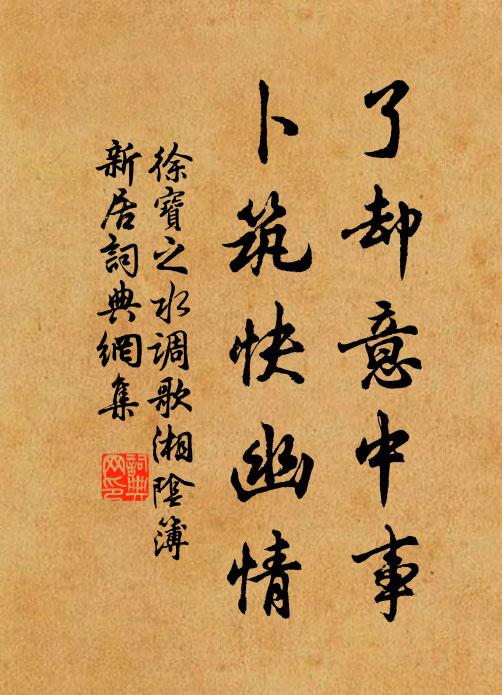 了却意中事
卜筑快幽情
徐寶之水调歌湘陰簿
新居詞典網集
詞典
网印